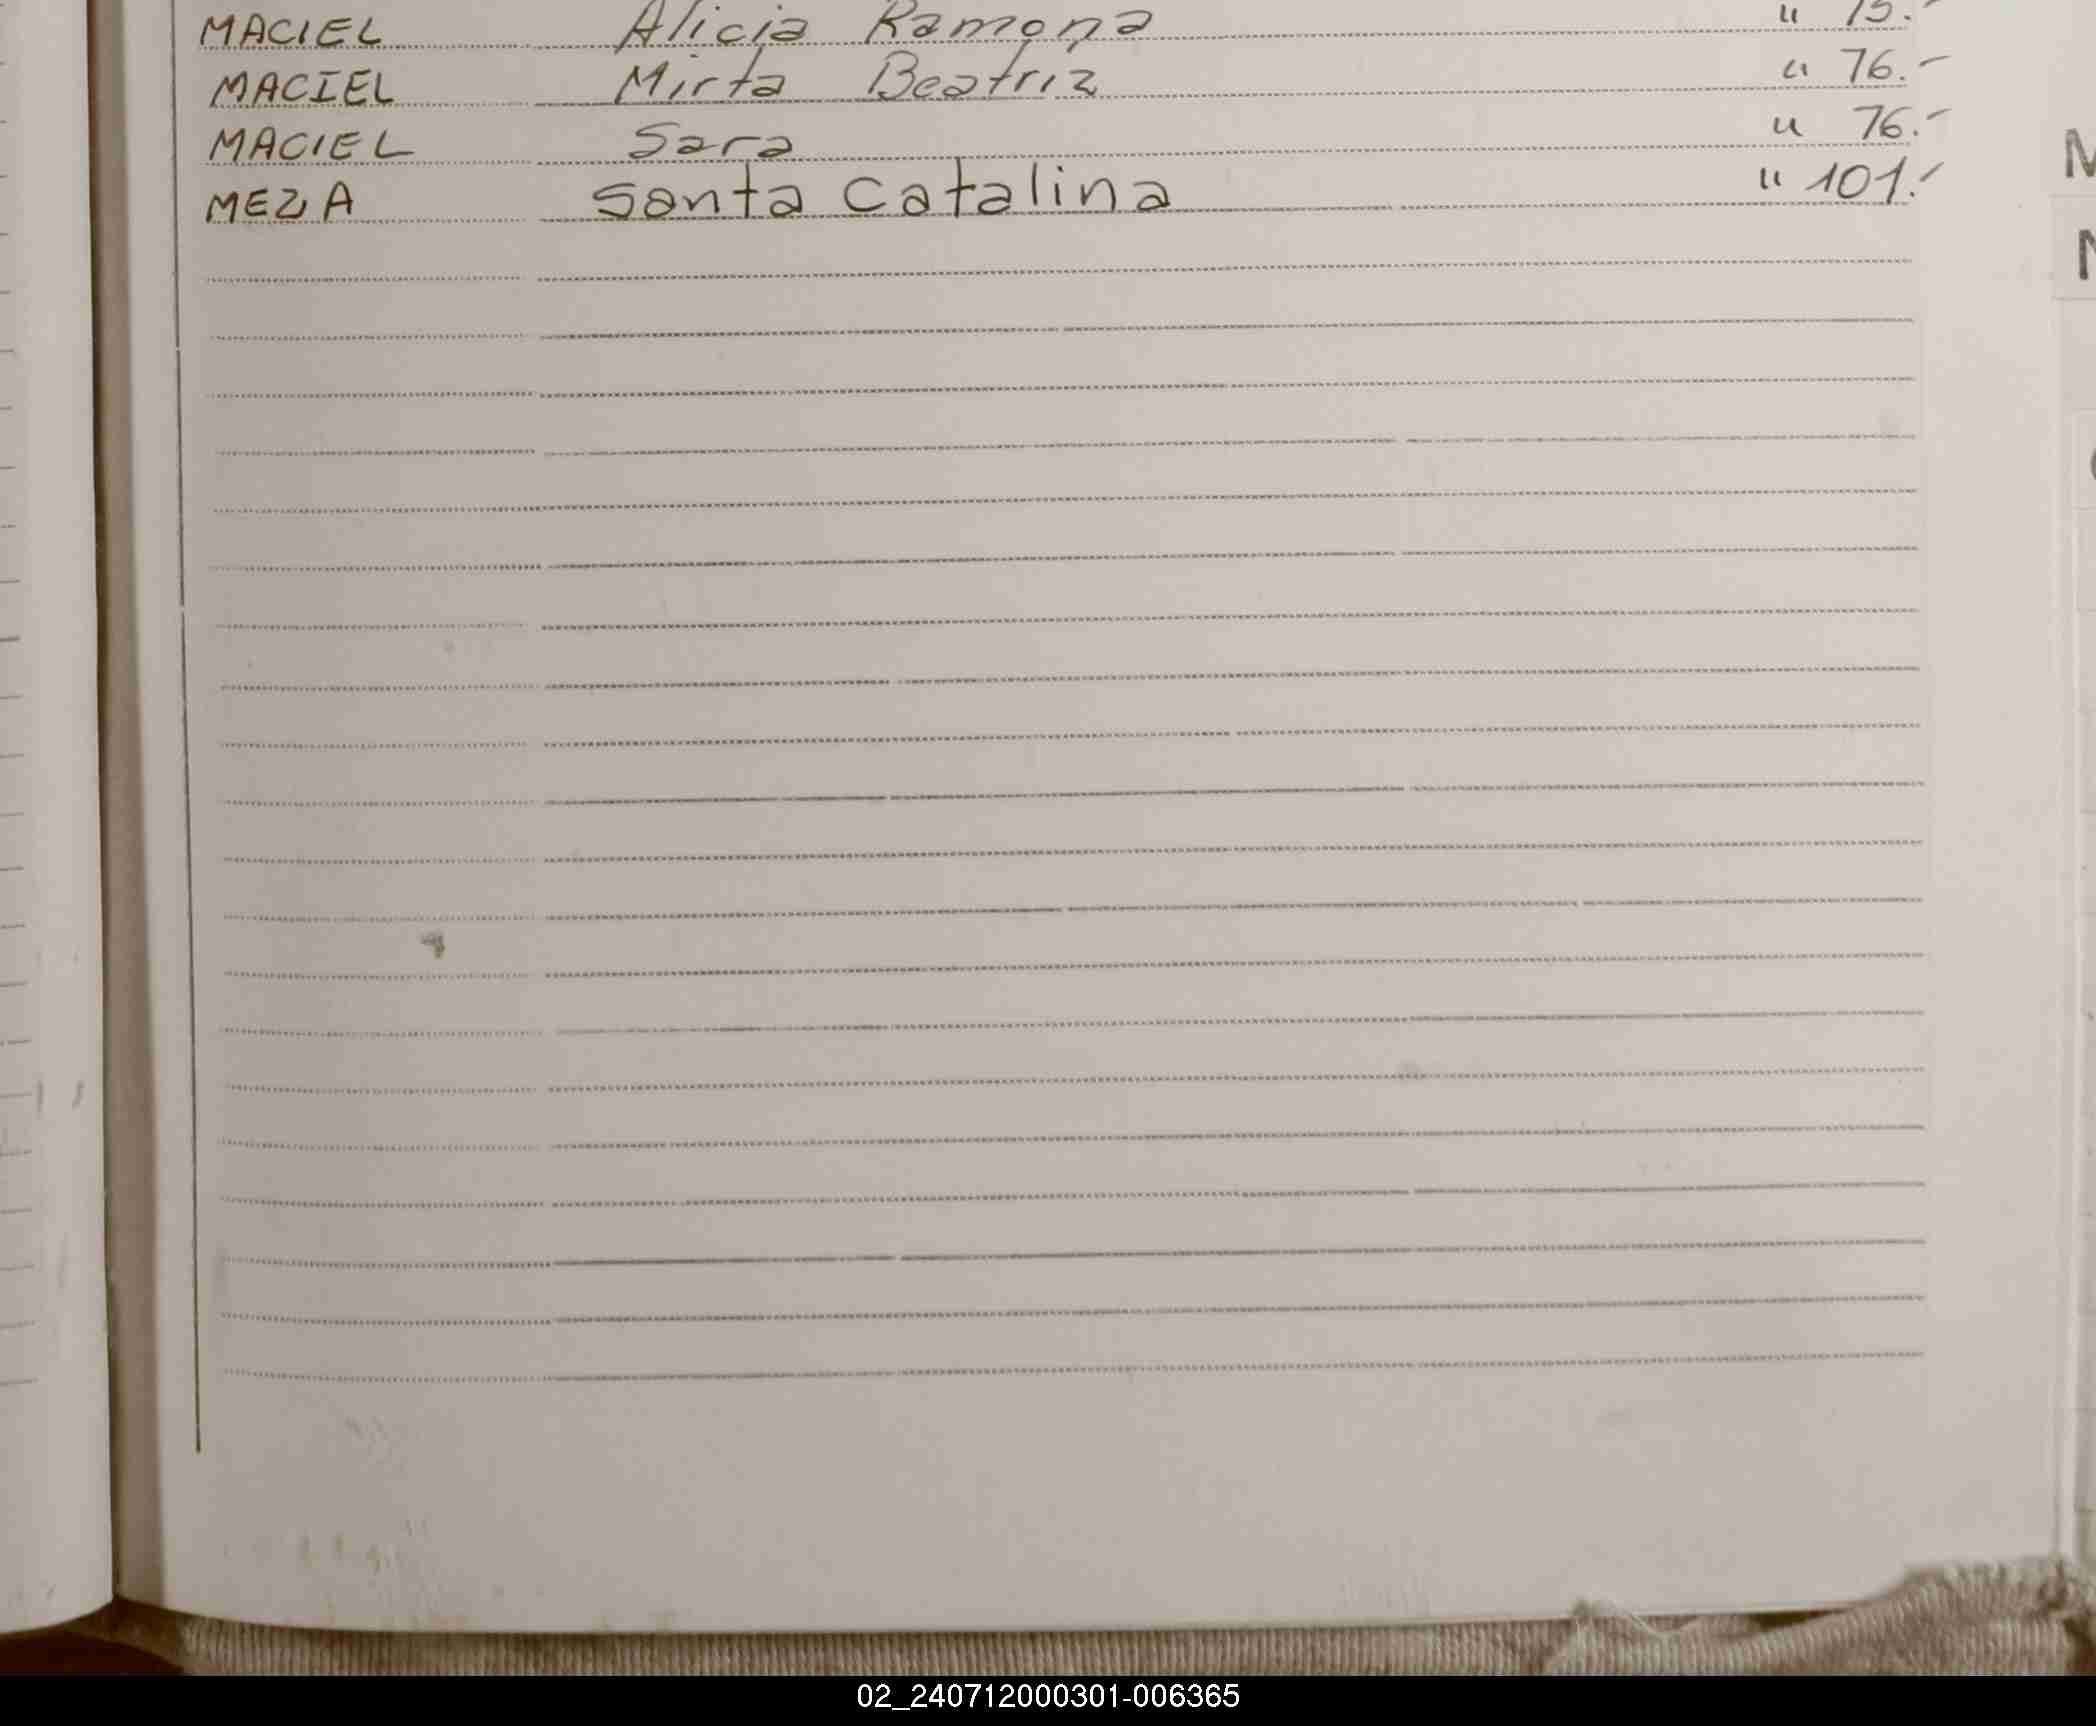 MACIEL Alicia Ramona " 75.-
MACIEL Mirta Beatriz " 76.-
MACIEL Sara " 76.-
MEZA Santa Catalina " 101.-
M
N
02_240712000301-006365